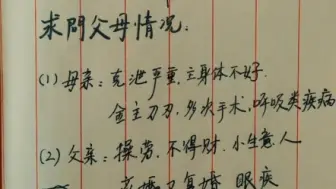 求問父母情况：
(1) 母亲：克泄严重，主身体不好.
金主刀刃，多次手术，呼吸类疾病
(2) 父亲：操劳，不得财，小生意人
离婚又复婚 眼疾